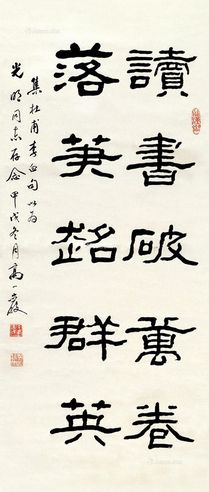 讀書破萬卷
落筆超群英
集杜甫李白句以为
光明同志存念甲戌冬月高一